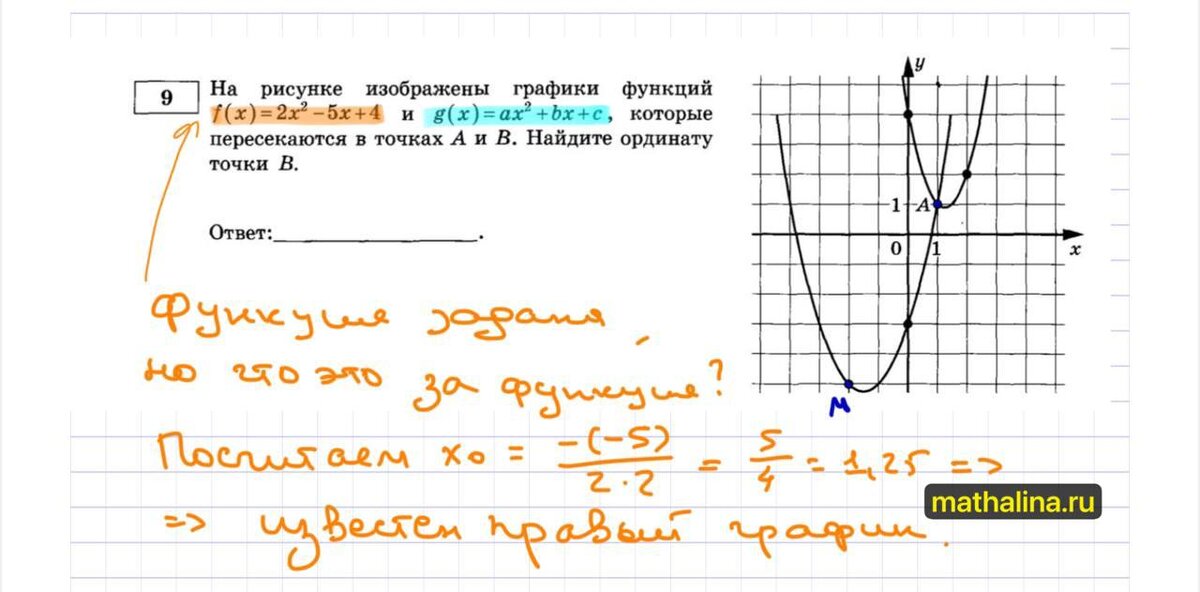 9
На рисунке изображены графики функций
f(x)=2x²−5x+4 и g(x)=ax²+bx+c, которые
пересекаются в точках A и B. Найдите ординату
точки B.
Ответ:____________________.
y
1
A
0
1
x
M
Функция задана,
но что это за функция?
Посчитаем x₀ = −(−5)/2·2 = 5/4 = 1,25 =>
=> известен правый график.
mathalina.ru